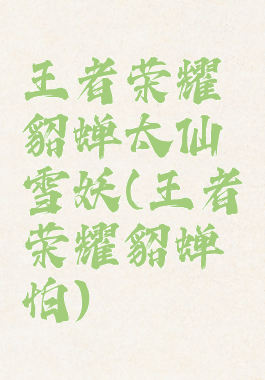 王者荣耀
貂蝉太仙
雪妖(王者
荣耀貂蝉
怕)